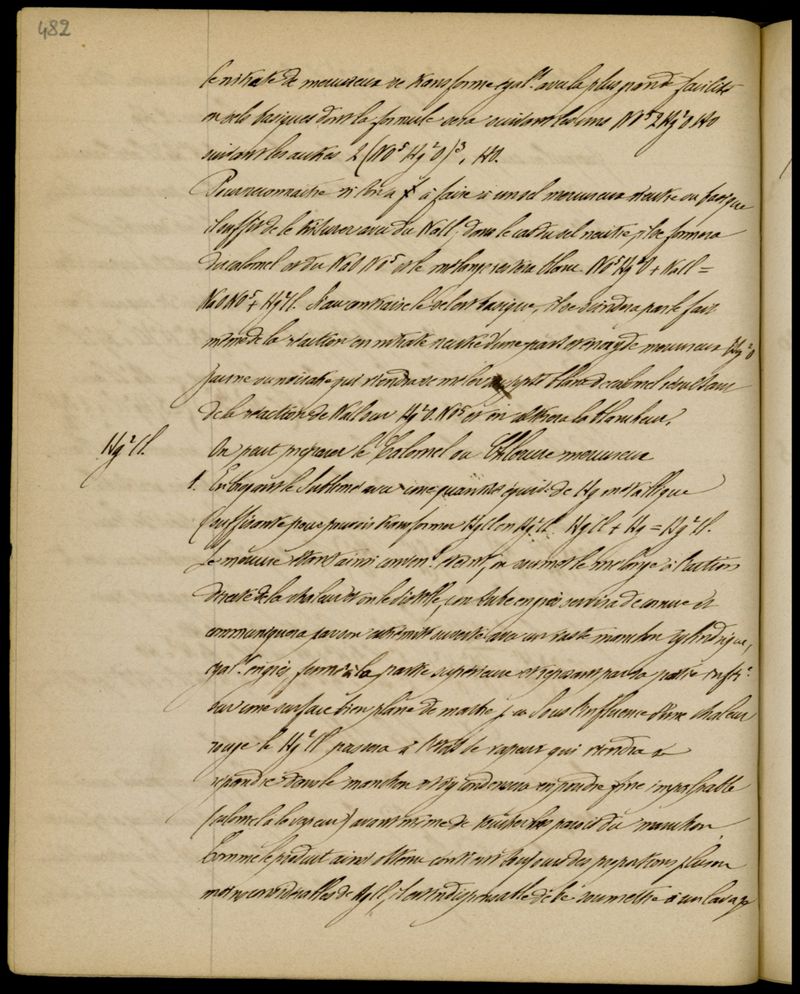 482
le nitrate de mercureux se transforme égal.t avec la plus grande facilité
en sels basiques dont la formule sera suivant les uns NO5 2Hg2O HO
suivant les autres 2 (NO5 Hg2O)3, HO.
Pour reconnaître si l'on a à faire à un sel mercureux neutre ou basique
il suffit de le triturer avec du NaCl; dans le cas du sel neutre, il se formera
du calomel et du NaO NO5 et le mélange restera blanc NO5 Hg2O + NaCl =
NaO NO5 + Hg2Cl. Si au contraire le sel est basique, il se scindera par le fait
même de la réaction en nitrate neutre d'une part et oxyde mercureux Hg2O
jaune ou noirâtre qui viendra se mêler au ppté blanc de calomel résultant
de la réaction de NaCl sur Hg2O.NO5 et en altérera la blancheur.
Hg2Cl. On peut préparer le Calomel ou Chlorure mercureux
1. En broyant le Sublimé avec une quantité équiv. de Hg métallique
(suffisante pour pouvoir transformer HgCl en Hg2Cl HgCl + Hg = Hg2Cl.
Le mercure étant ainsi conven.t éteint, on soumet le mélange à l'action
directe de la chaleur et on le distille; un tube en grès servira de cornue et
communiquera par son extrémité ouverte avec un vaste manchon cylindrique,
égal.t en grès, fermé à la partie supérieure et reposant par sa partie infér.
sur une surface bien plane de marbre Sous l'influence d'une chaleur
rouge le Hg2Cl passera à l'état de vapeur qui viendra se
répandre dans le manchon et s'y condensera en poudre fine impalpable
(calomel à la vapeur) avant même de toucher les parois du manchon.
Comme le produit ainsi obtenu contient toujours des proportions plus ou
moins considérables de HgCl, il est indispensable de le soumettre à un lavage